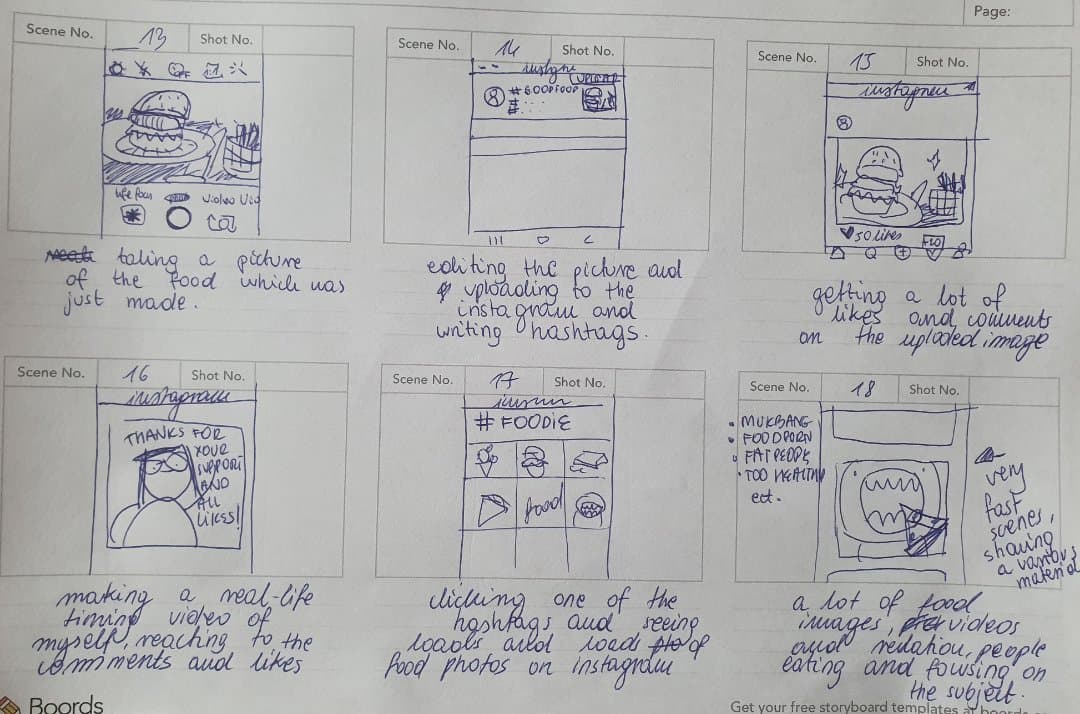 Page:
Scene No. 13 Shot No.
life focus video Vid
taking a picture
of the food which was
just made.
Scene No. 14 Shot No.
UPLOAD
# GOODFOOD
editing the picture and
uploading to the
instagram and
writing hashtags.
Scene No. 15 Shot No.
50 likes
getting a lot of
likes and comments
on the uploaded image
Scene No. 16 Shot No.
instagram
THANKS FOR
YOUR
SUPPORT
AND
ALL
LIKESS!
making a real-life
timing video of
myself, reaching to the
comments and likes
Scene No. 17 Shot No.
# FOODIE
food
clicking one of the
hashtags and seeing
loads and loads of
food photos on instagram
Scene No. 18 Shot No.
• MUKBANG
• FOODPORN
• FAT PEOPL
• TOO HEALTHY
ect.
very
fast
scenes,
showing
a various
material
a lot of food
images, videos
and people
eating and
the subject.
Boords
Get your free storyboard templates at